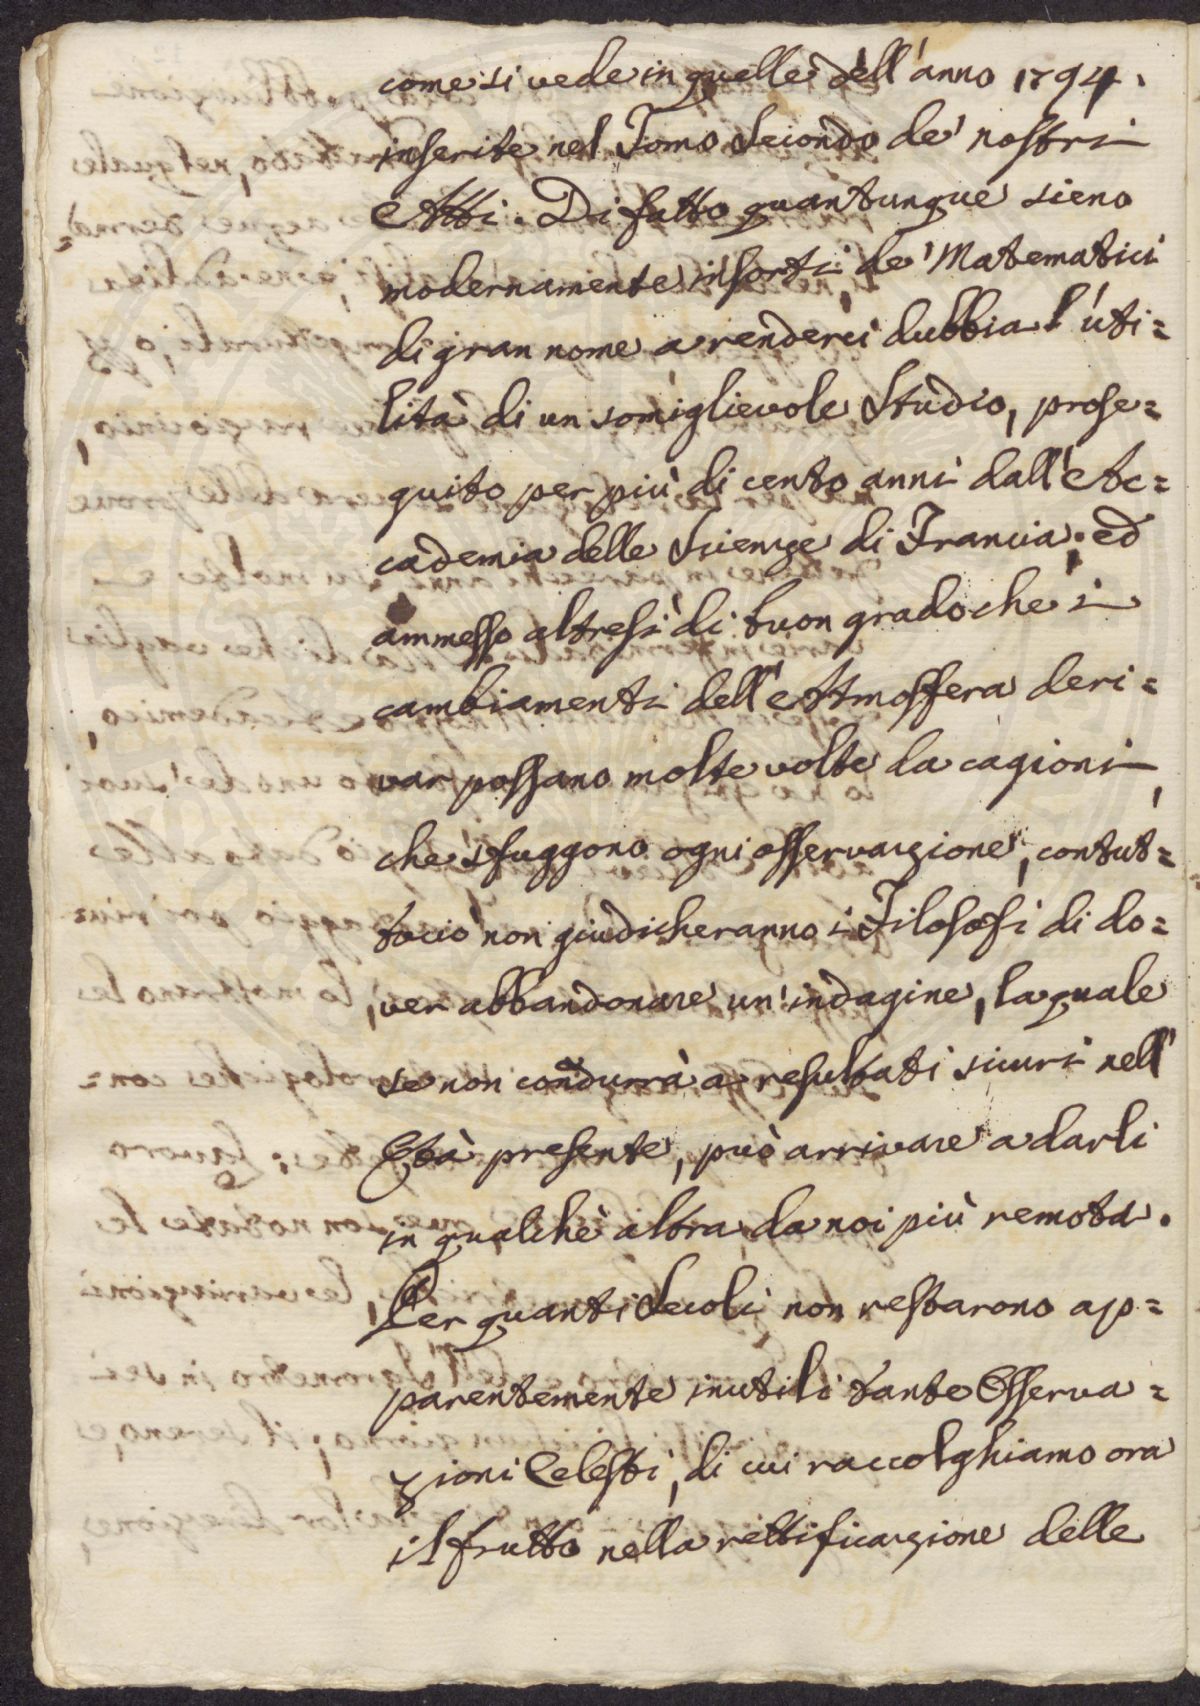 come si vede in quelle dell'anno 1794.
inserite nel Tomo Secondo de' nostri
Atti. Di fatto quantunque sieno
modernamente insorti de' Matematici
di gran nome a renderci dubbia l'uti=
lità di un somiglievole Studio, prose=
guito per più di cento anni dall'Ac=
cademia delle Scienze di Francia; ed
ammesso altresì di buon grado che i
cambiamenti dell'Atmosfera deri=
var possano molte volte da cagioni,
che sfuggono ogni osservazione, contut=
tociò non giudicheranno i Filosofi di do=
ver abbandonare un'indagine, la quale
se non condurrà a resultati sicuri nell'
Età presente, può arrivare a darli
in qualche altra da noi più remota.
Per quanti Secoli non restarono ap=
parentemente inutili tante Osserva=
zioni Celesti, di cui raccolghiamo ora
il frutto nella rettificazione delle